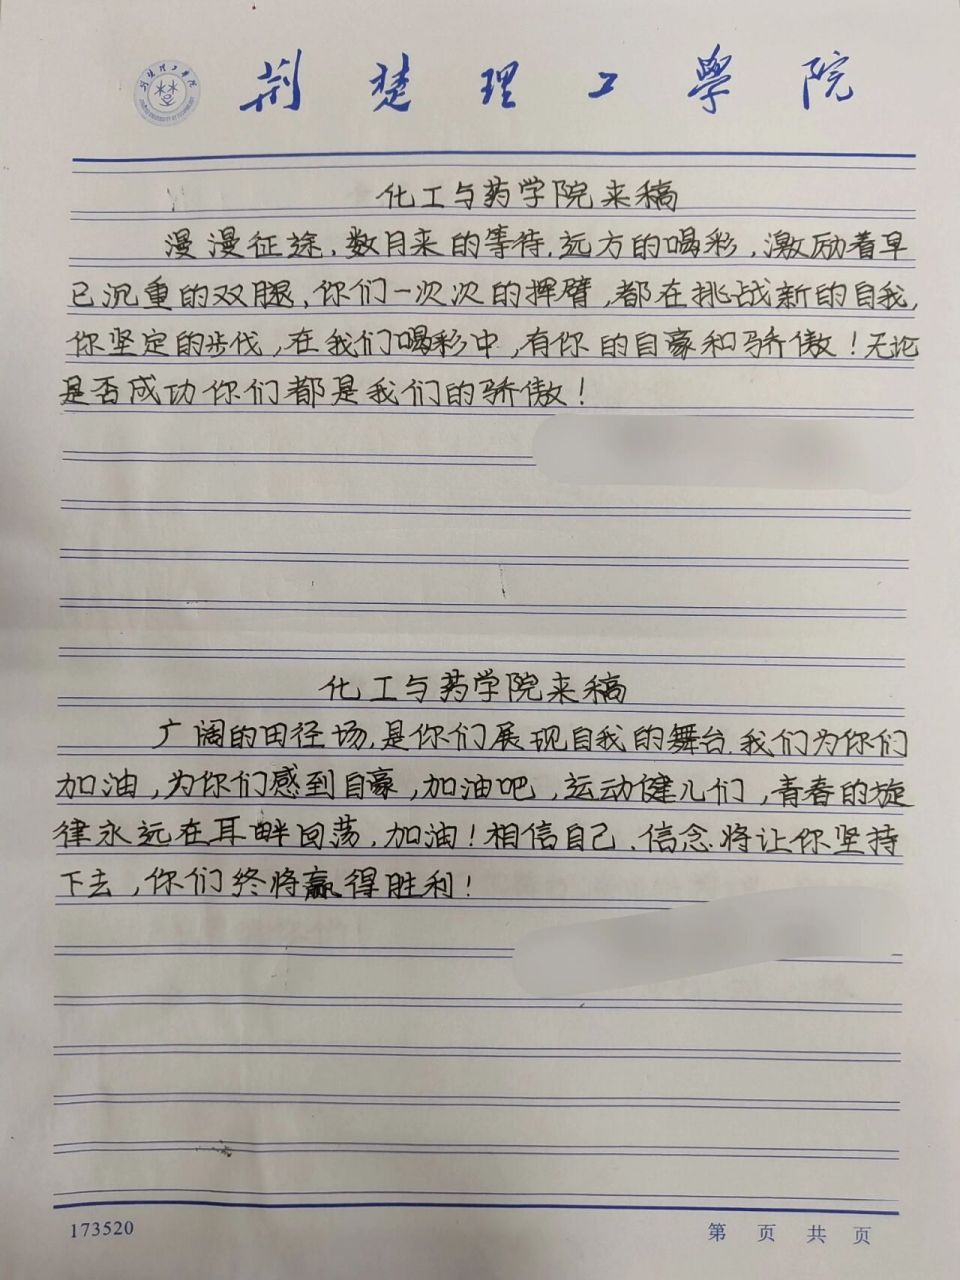 荆楚理工學院
化工与药学院来稿
漫漫征途,数月来的等待,远方的喝彩,激励着早
已沉重的双腿,你们一次次的挥臂,都在挑战新的自我,
你坚定的步伐,在我们喝彩中,有你的自豪和骄傲!无论
是否成功你们都是我们的骄傲!
化工与药学院来稿
广阔的田径场,是你们展现自我的舞台.我们为你们
加油,为你们感到自豪,加油吧,运动健儿们,青春的旋
律永远在耳畔回荡,加油!相信自己、信念将让你坚持
下去,你们终将赢得胜利!
173520
第 页 共 页